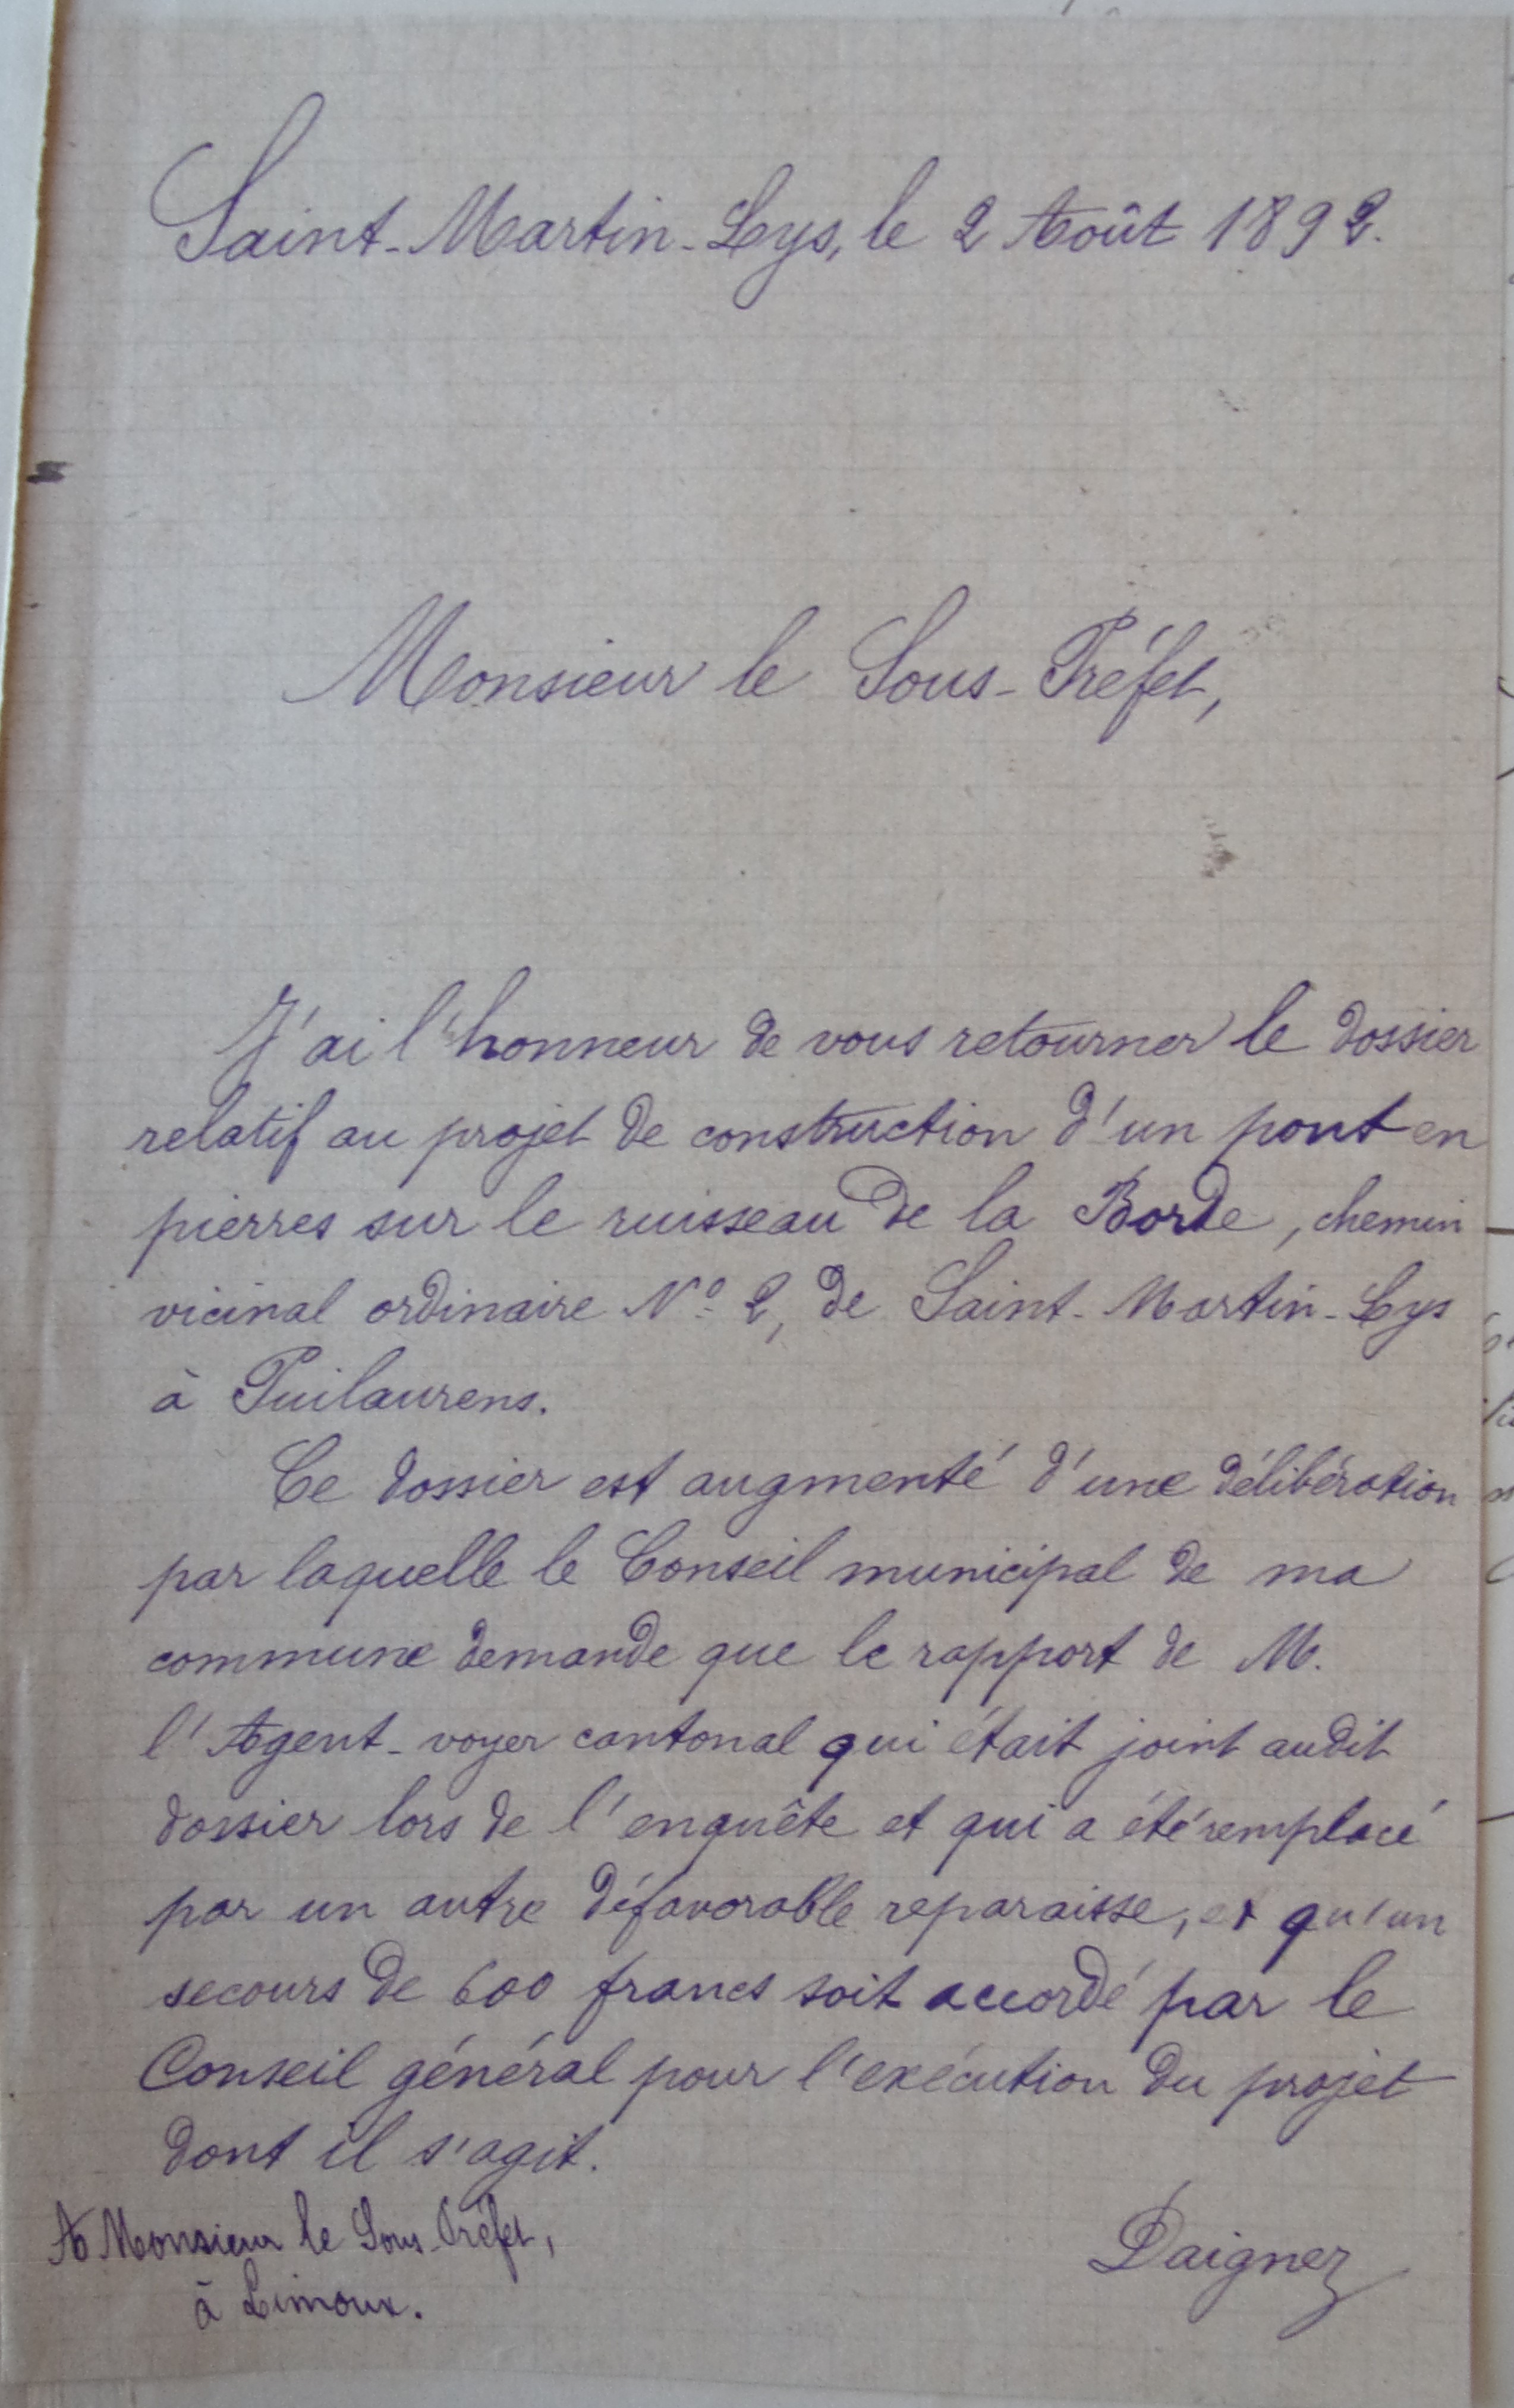 Saint-Martin-Lys, le 2 Août 1892.
Monsieur le Sous-Préfet,
J'ai l'honneur de vous retourner le dossier
relatif au projet de construction d'un pont en
pierres sur le ruisseau de la Borde, chemin
vicinal ordinaire N° 2, de Saint-Martin-Lys
à Puilaurens.
Ce dossier est augmenté d'une délibération
par laquelle le Conseil municipal de ma
commune demande que le rapport de M.
l'Agent-voyer cantonal qui était joint audit
dossier lors de l'enquête et qui a été remplacé
par un autre défavorable reparaisse, et qu'un
secours de 600 francs soit accordé par le
Conseil général pour l'exécution du projet
dont il s'agit.
A Monsieur le Sous-Préfet,
à Limoux.
Daignez